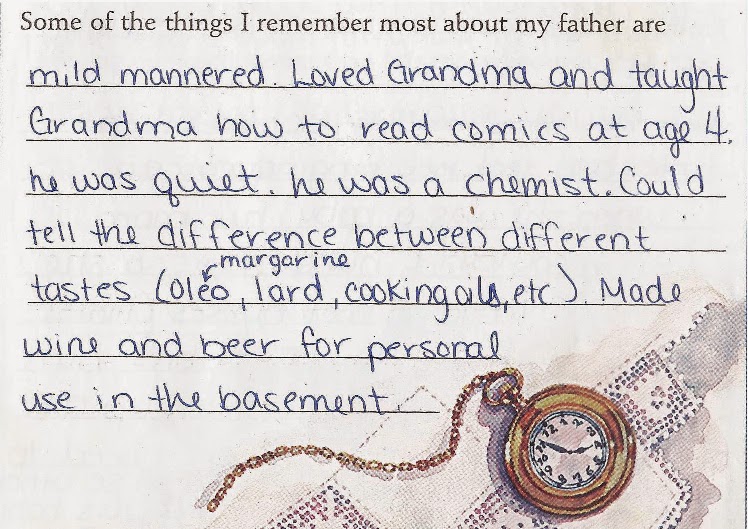 Some of the things I remember most about my father are
mild mannered. Loved Grandma and taught
Grandma how to read comics at age 4.
he was quiet. he was a chemist. Could
tell the difference between different
margarine
tastes (oleo, lard, cooking oils, etc). Made
wine and beer for personal
use in the basement.